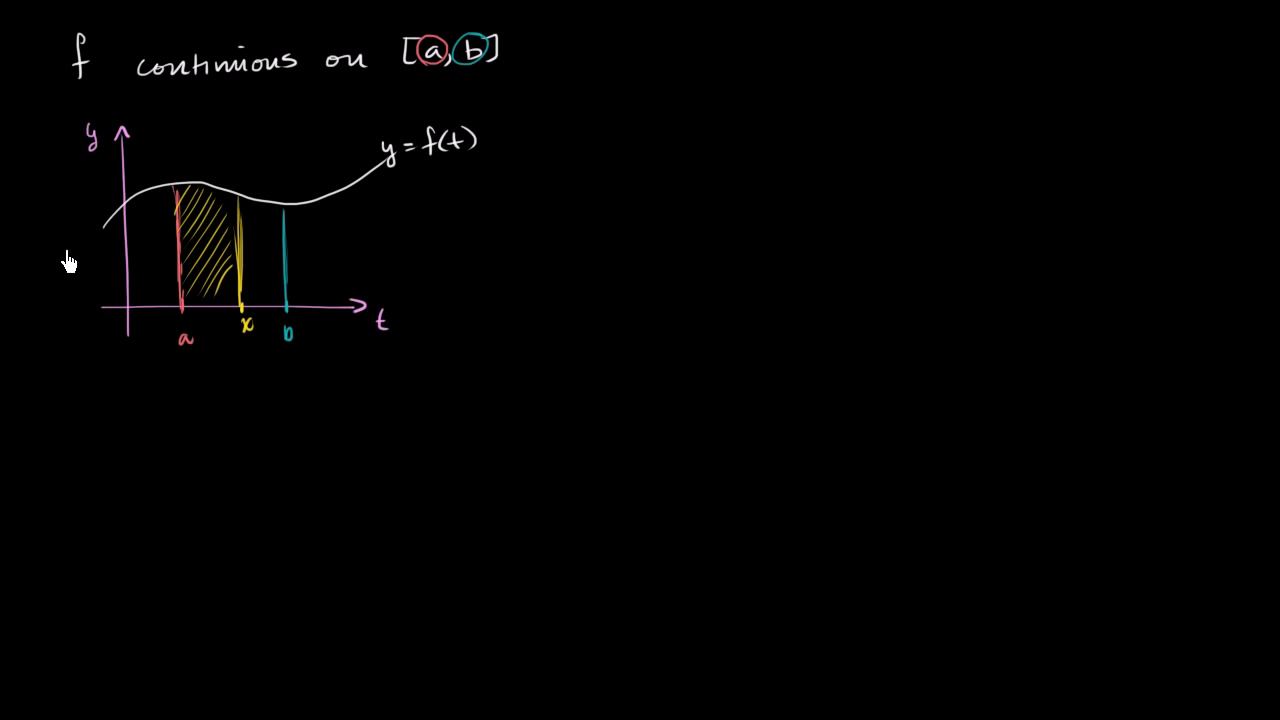 f continuous on [a, b]
y
y = f(t)
t
x
a
b